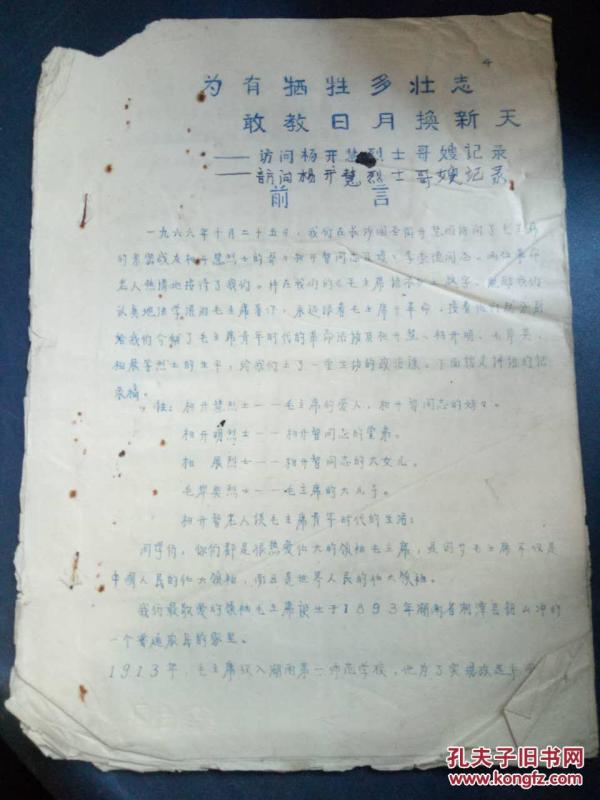 4
为有牺牲多壮志
敢教日月换新天
——访问杨开慧烈士哥嫂记录
——访问杨开慧烈士哥嫂记录
前言
一九六六年十月二十五日，我们在长沙
的亲密战友杨开慧烈士的哥哥杨开智同志及嫂嫂李崇德同志。两位革命
老人热情地接待了我们。并在我们的《毛主席语录》上 字，
认真地活学活用毛主席著作，永远跟着毛主席干革命，接着他们
给我们介绍了毛主席青年时代的革命活动及杨开慧、杨开明、毛岸英、
杨展等烈士的生平，给我们上了一堂生动的政治课。下面就是讲话的记
录稿。
注：杨开慧烈士——毛主席的爱人，杨开智同志的妹妹。
杨开明烈士——杨开智同志的堂弟。
杨 展烈士——杨开智同志的大女儿。
毛岸英烈士——毛主席的大儿子。
杨开智老人谈毛主席青年时代的生活：
同学们，你们都是很热爱伟大的领袖毛主席，是的，毛主席不仅是
中国人民的伟大领袖，而且是世界人民的伟大领袖。
我们最敬爱的领袖毛主席诞生于1893年湖南省湘潭县韶山冲的
一个普通农民的家里。
1913年，毛主席考入湖南第一师范学校，他为了实现改造
孔夫子旧书网
www.kongfz.com